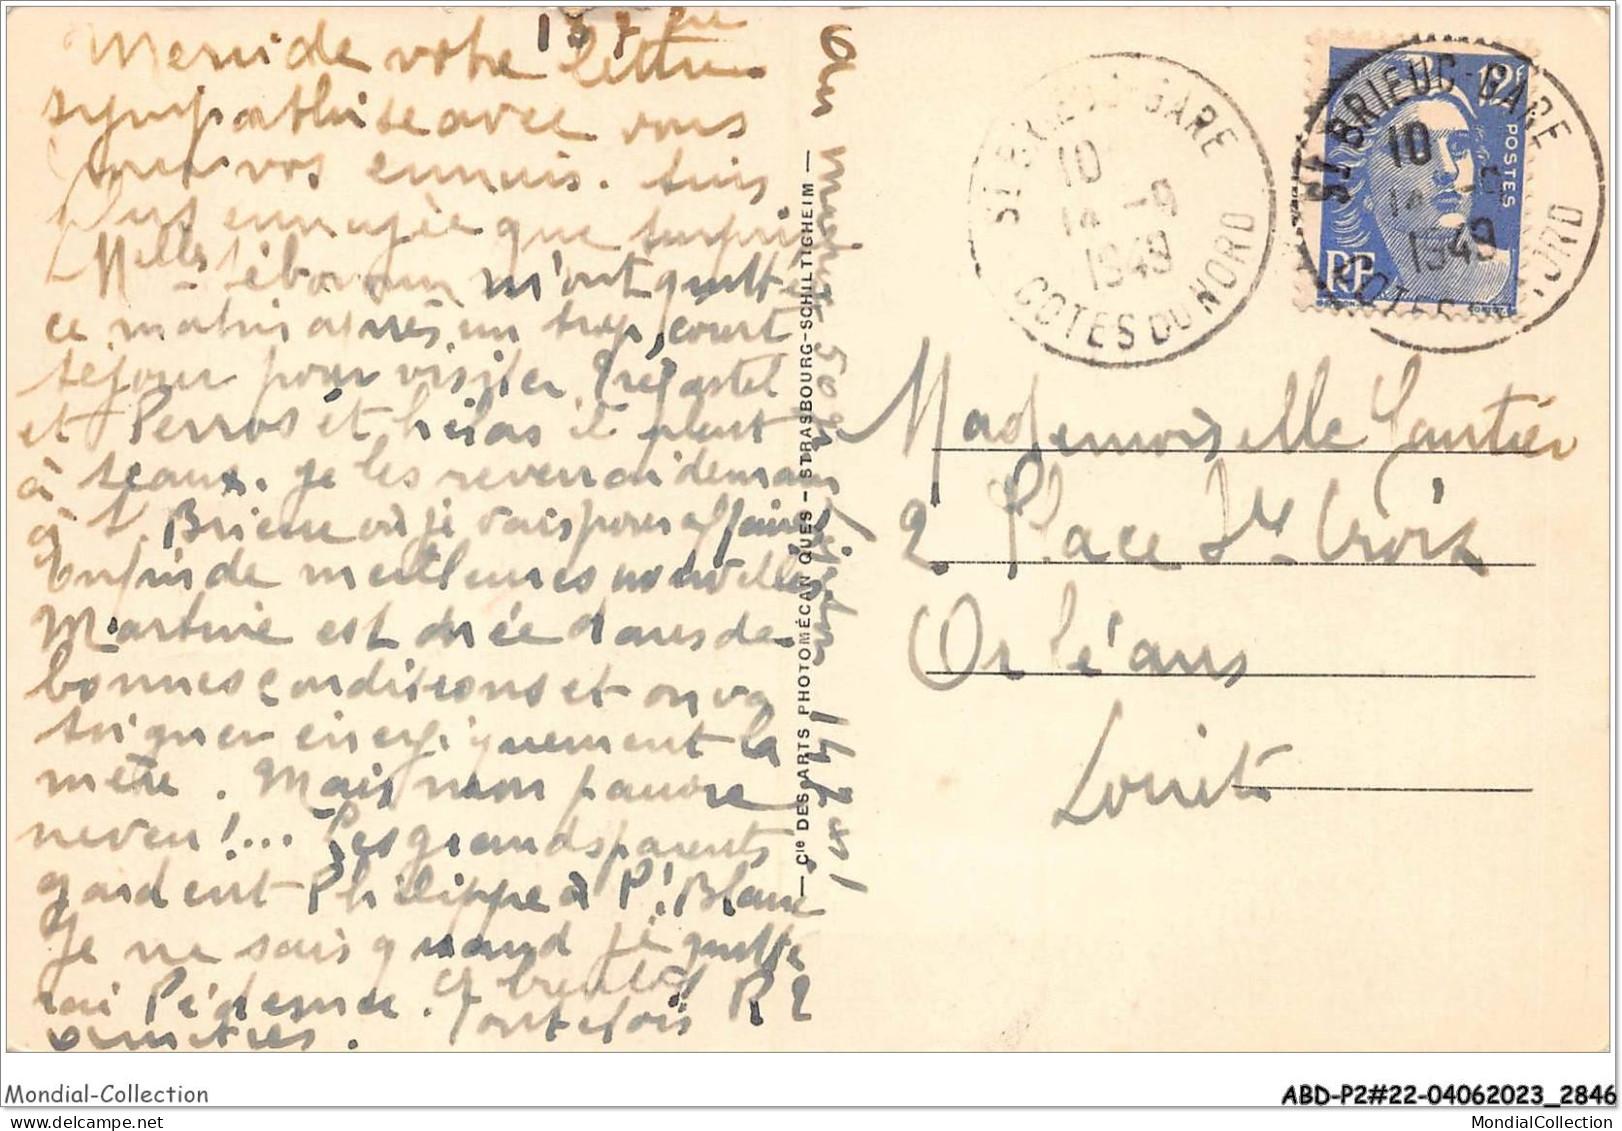 Merci de votre lettre
sympathise avec vous
vos ennuis. Suis
plus ennuyée que surprise
Melles m'ont quittée
ce matin après un trop court
séjour pour visiter Tregastel
et Perros et hélas il pleut
à seaux. Je les reverrai demain
à St. Brieuc où je vais pour affaires
Enfin de meilleures nouvelles
Martine est opérée dans de
bonnes conditions et on va
soigner énergiquement la
mère. Mais mon pauvre
neveu!... Les grands parents
gardent Philippe à Pt. Blanc
Je ne sais quand je quitte
rai Pédernec. A bientôt
Toutefois
amitiés.
14 7bre
Cie DES ARTS PHOTOMÉCANIQUES - STRASBOURG-SCHILTIGHEIM
ST BRIEUC-GARE
10
14 -9
1949
COTES DU NORD
12F
POSTES
RF
ST BRIEUC-GARE
10
1949
Mademoiselle Gautier
2 Place Ste Croix
Orléans
Loiret
Mondial-Collection
ABD-P2#22-04062023_2846
MondialCollection